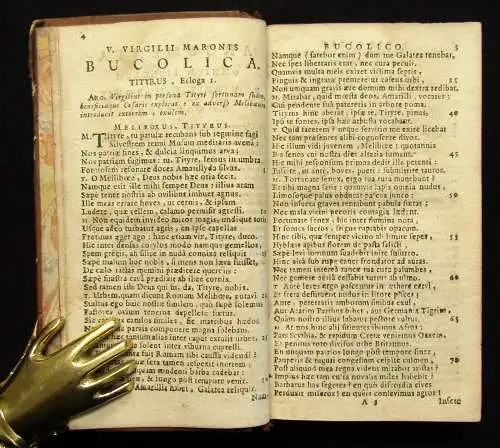 4
V. VIRGILII MARONIS
BUCOLICA.
TITYRUS, Ecloga 1.
ARG. Virgilius in persona Tityri fortunam suam,
beneficiumque Cæsaris explicat: ex adverso Melibœum
introducit exterrem, & exulem.
MELIBOEUS. TITYRUS.
M. Tityre, tu patulæ recubans sub tegmine fagi
Silvestrem tenui Musam meditaris avenâ:
Nos patriæ fines, & dulcia linquimus arva;
Nos patriam fugimus: tu, Tityre, lentus in umbra
Formosam resonare doces Amaryllida silvas.
T. O Melibœe, Deus nobis hæc otia fecit.
Namque erit ille mihi semper Deus: illius aram
Sæpe tener nostris ab ovilibus imbuet agnus.
Ille meas errare boves, ut cernis, & ipsum
Ludere, quæ vellem, calamo permisit agresti.
M. Non equidem invideo: miror magis: undique totis
Usque adeo turbatur agris. en ipse capellas
Protinus æger ago: hanc etiam vix, Tityre, duco.
Hic inter densas corylos modo namque gemellos,
Spem gregis, ah silice in nuda connixa reliquit
Sæpe malum hoc nobis, si mens non læva fuisset,
De cœlo tactas memini prædicere quercus:
Sæpe sinistra cavâ prædixit ab ilice cornix.
Sed tamen iste Deus qui sit, da, Tityre, nobis.
T. Urbem, quam dicunt Romam Melibœe, putavi
Stultus ego huic nostræ similem, quo sæpe solemus
Pastores ovium teneros depellere fœtus.
Sic canibus catulos similes, sic matribus hædos
parvis componere magna solebam.
tantum alias inter caput extulit urbes,
solent inter viburna cupressi.
fuit Romam tibi caussa videndi?
barba cadebat:
& longo post tempore venit.
Amaryllis habet, Galatea reliquit.
Nam-
BUCOLICO. 5
Namque (fatebor enim) dum me Galatea tenebat,
Nec spes libertatis erat, nec cura peculi.
Quamvis multa meis exiret victima septis,
Pinguis & ingratæ premeretur caseus urbi,
Non unquam gravis ære domum mihi dextra redibat.
M. Mirabar, quid mœsta deos, Amarilli, vocares:
Cui pendere sua patereris in arbore poma.
Tityrus hinc aberat: ipsæ te, Tityre, pinus,
Ipsi te fontes, ipsa hæc arbusta vocabant.
T. Quid facerem? neque servitio me exire licebat 40
Nec tam præsentes alibi cognoscere divos.
Hic illum vidi juvenem, Melibœe! quotannis
Bis senos cui nostra dies altaria fumant.
Hic mihi responsum primus dedit ille petenti:
Pascite, ut ante, boves, pueri: submittite tauros. 45
M. Fortunate senex, ergo tua rura manebunt!
Et tibi magna satis: quamvis lapis omnia nudus,
Limosoque palus obducat pascua junco:
Non insueta graves tentabunt pabula fœtas:
Nec mala vicini pecoris contagia lædent. 50
Fortunate senex, hic inter flumina nota,
Et fontes sacros, frigus captabis opacum.
Hinc tibi, quæ semper vicino ab limite sæpes, 55
Hyblæis apibus florem depasta salicti
Sæpe levi somnum suadebit inire susurro.
Hinc altâ sub rupe canet frondator ad auras.
Nec tamen interea raucæ tua cura palumbes,
Nec gemere aëriâ cessabit turtur ab ulmo. 60
T. Ante leves ergo pascentur in æthere cervi,
Et freta destituent nudos in littore pisces:
Ante, pererratis amborum finibus exul,
Aut Ararim Parthus bibet, aut Germania Tigrim,
Quam nostro illius labatur pectore vultus. 65
M. At nos hinc alii sitientes ibimus Afros:
Pars Scythiam, & rapidum Cretæ veniemus Oaxem,
Et penitus toto divisos orbe Britannos.
En unquam patrios longo post tempore fines,
Pauperis & tuguri congestum cespite culmen, 70
Post aliquot mea regna videns mirabor aristas?
Impius hæc tam culta novalia miles habebit?
Barbarus has segetes? en quò discordia cives
Perduxit miseros! en queis consevimus agros!
A 3 Insere